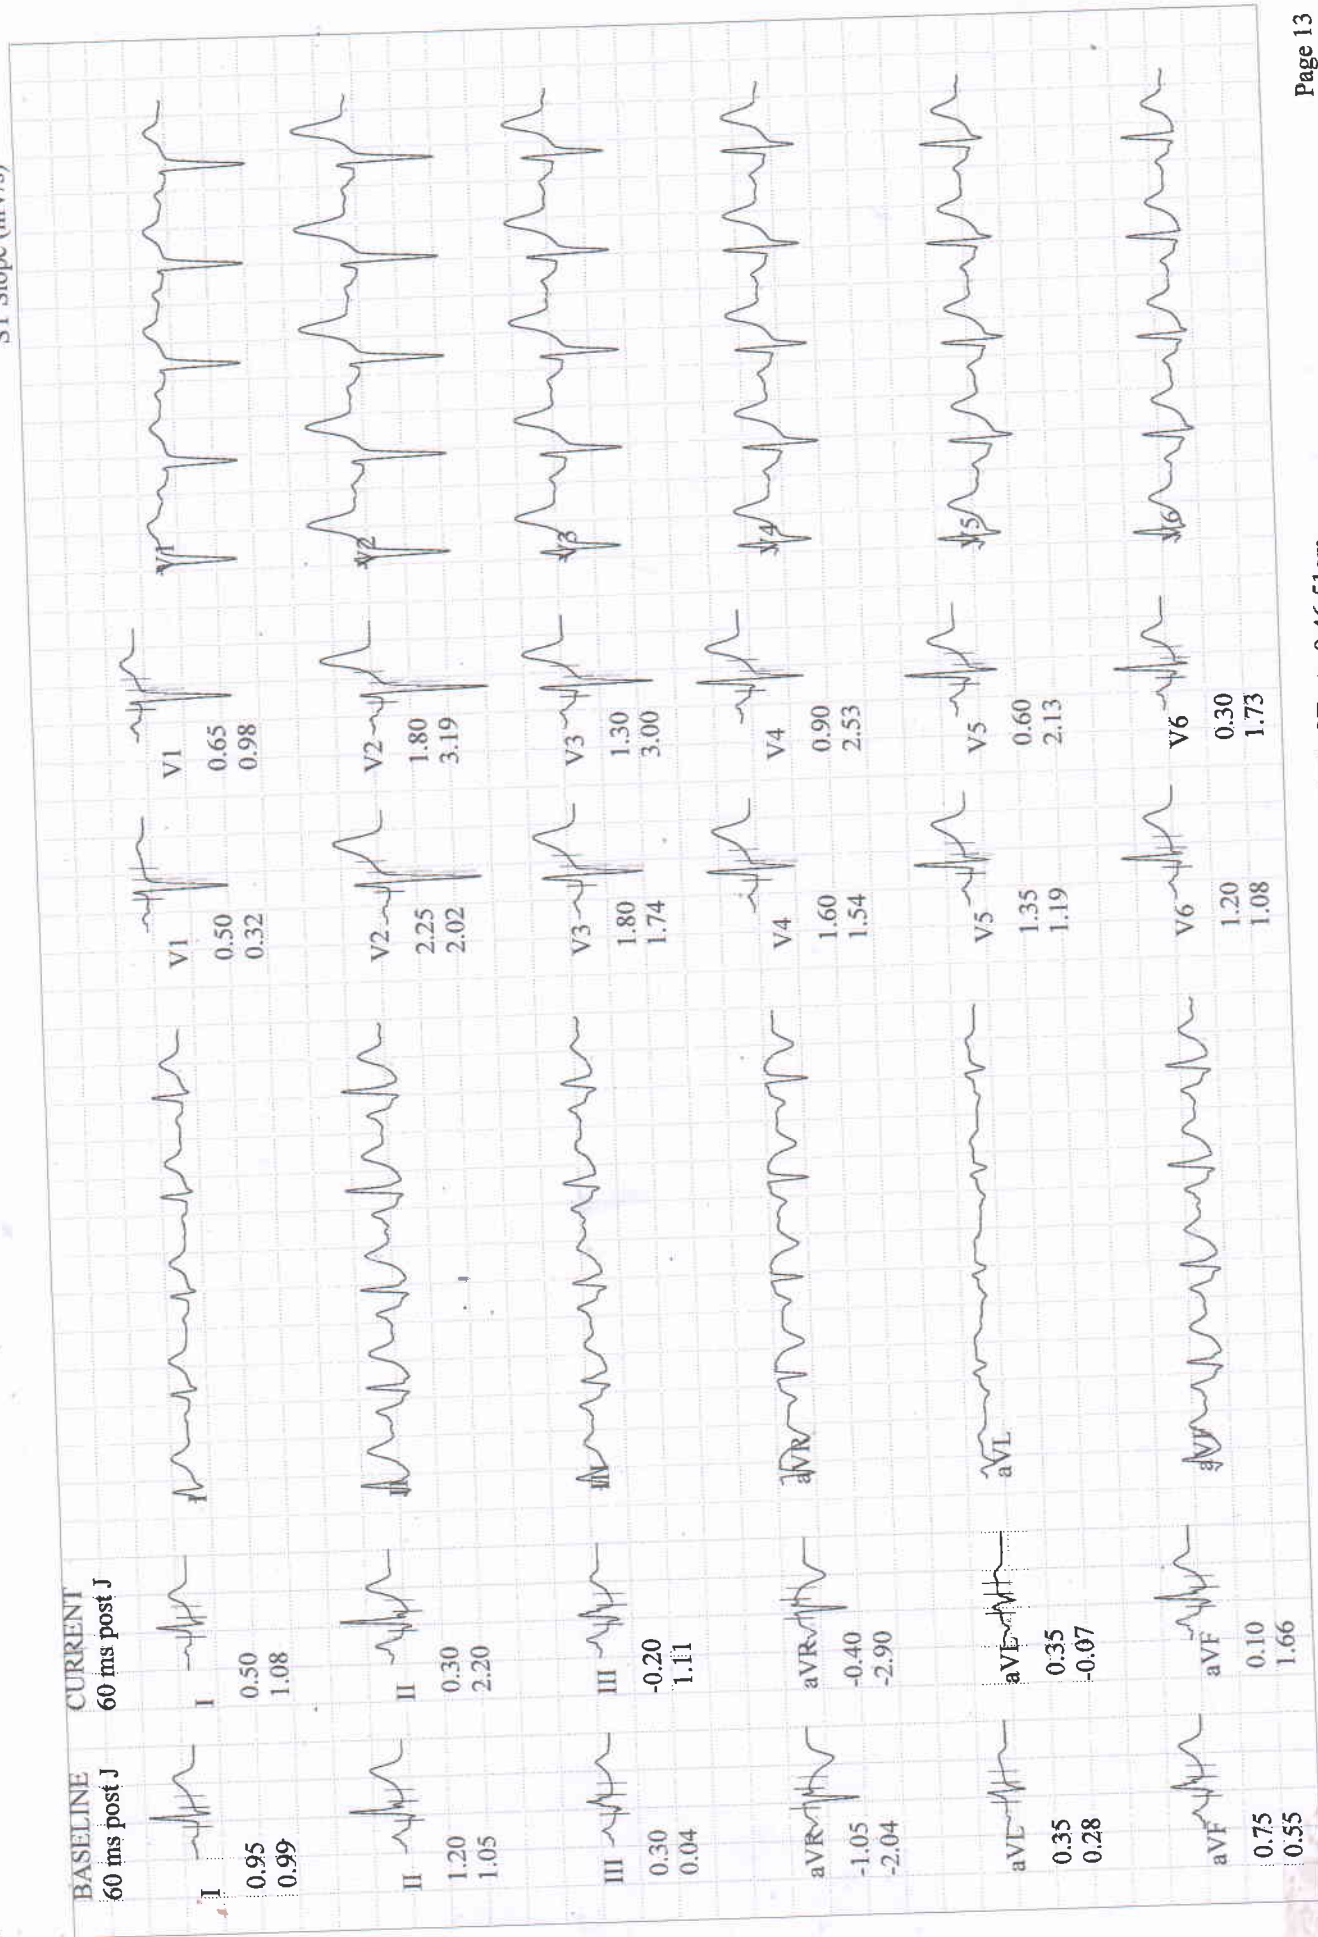 ST Slope (mV/s)
BASELINE
60 ms post J
CURRENT
60 ms post J
I
0.95
0.99
I
0.50
1.08
I
V1
0.50
0.32
V1
0.65
0.98
V1
II
1.20
1.05
II
0.30
2.20
II
V2
2.25
2.02
V2
1.80
3.19
V2
III
0.30
0.04
III
-0.20
1.11
III
V3
1.80
1.74
V3
1.30
3.00
V3
aVR
-1.05
-2.04
aVR
-0.40
-2.90
aVR
V4
1.60
1.54
V4
0.90
2.53
V4
aVL
0.35
0.28
aVL
0.35
-0.07
aVL
V5
1.35
1.19
V5
0.60
2.13
V5
aVF
0.75
0.55
aVF
0.10
1.66
aVF
V6
1.20
1.08
V6
0.30
1.73
V6
Page 13